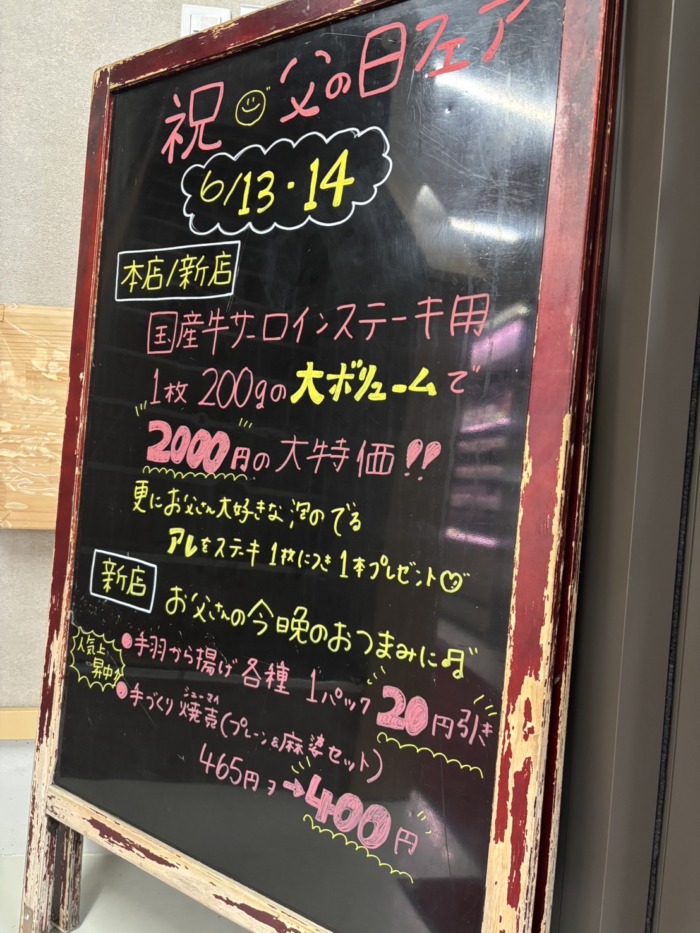 祝 父の日フェア
6/13・14
本店/新店
国産牛サーロインステーキ用
1枚 200gの大ボリュームで
2000円の大特価!!
更にお父さん大好きな泡のでる
アレをステーキ1枚につき1本プレゼント♡
新店 お父さんの今晩のおつまみに♫
人気上昇中
●手羽から揚げ各種 1パック20円引き
シューマイ
●手づくり焼売(プレーン&麻婆セット)
465円ヲ→400円